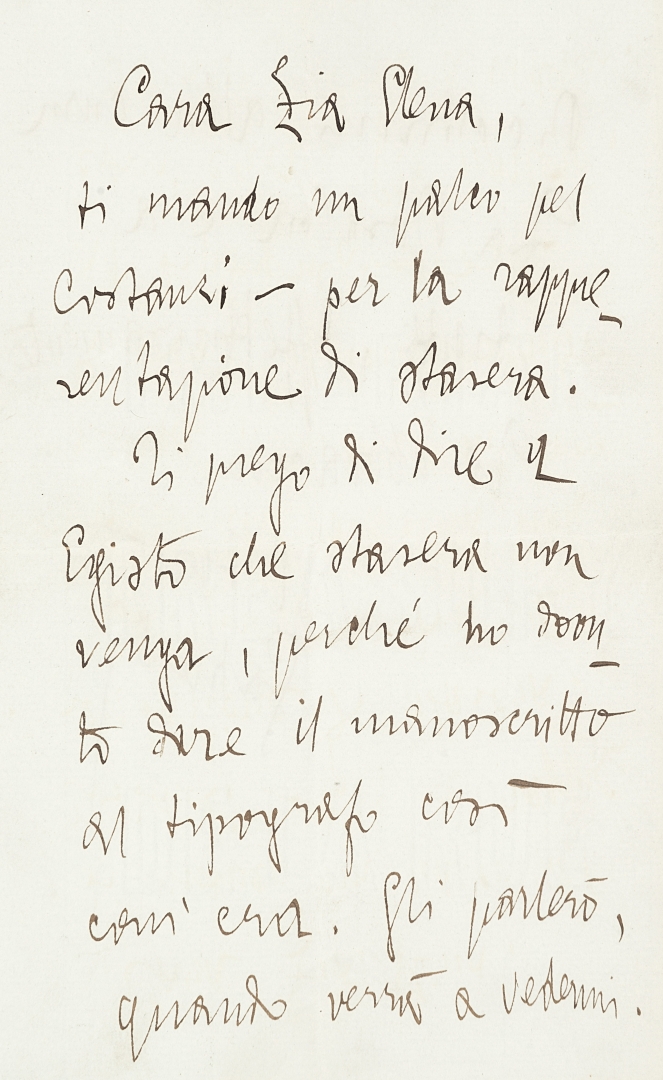 Cara Zia Elena,
ti mando un palco pel
Costanzi – per la rappre-
sentazione di stasera.
Ti prego di dire a
Egisto che stasera non
venga, perché ho dovu-
to dare il manoscritto
al tipografo così
com'era. Gli parlerò,
quando verrà a vedermi.